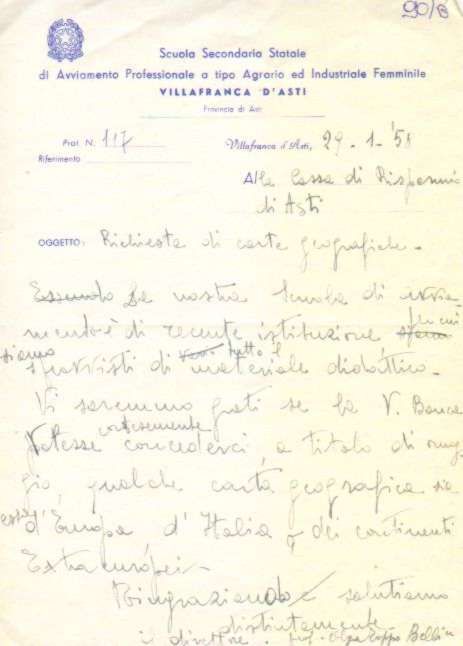 90/B
Scuola Secondaria Statale
di Avviamento Professionale a tipo Agrario ed Industriale Femminile
VILLAFRANCA D'ASTI
Provincia di Asti
Prot. N. 117
Villafranca d'Asti, 29.1.'58
Riferimento
Alla Cassa di Risparmio
di Asti
OGGETTO: Richiesta di carte geografiche.
Essendo La nostra Scuola di avvia-
mento è di recente istituzione, per cui
siamo sprovvisti di tutto il materiale didattico.
Vi saremmo grati se la V. Banca
potesse cortesemente concederci, a titolo di omag-
gio, qualche carta geografica sia
essa d'Europa d'Italia o dei continenti
Extraeuropei.
Ringraziando salutiamo
distintamente
il direttore. prof. Olga